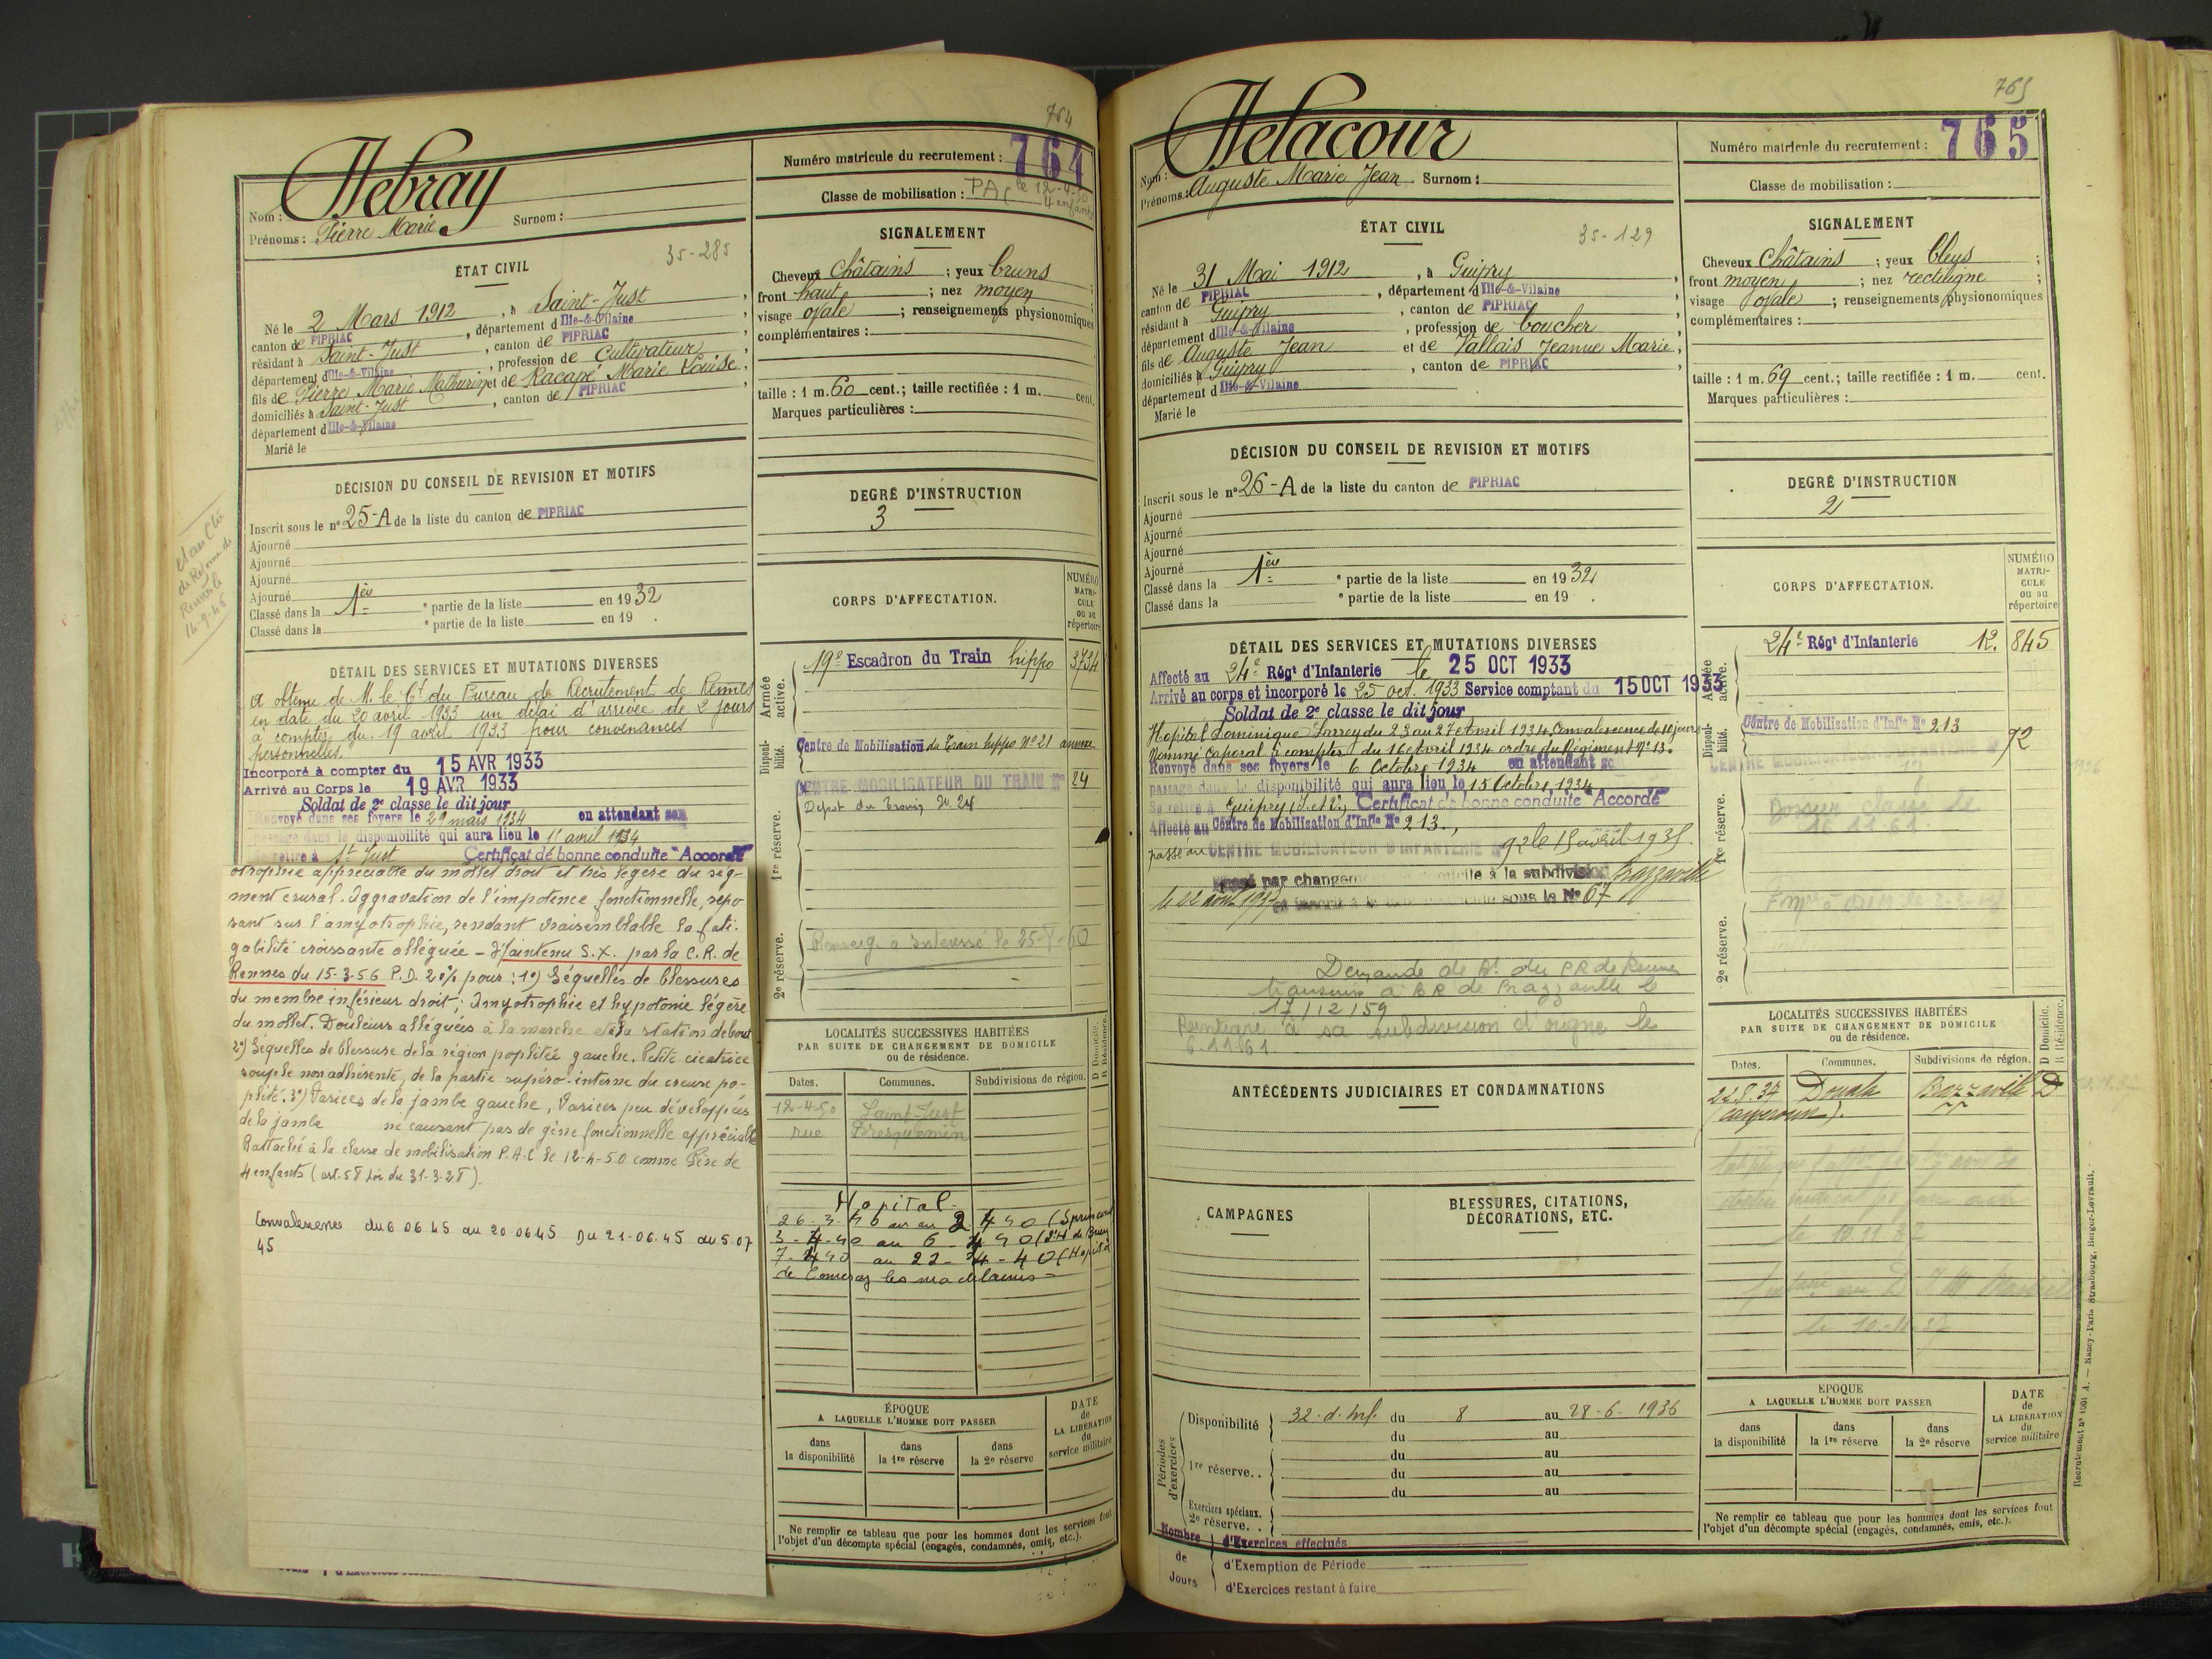 764
Debray
Nom :
Prénoms : Pierre Marie Surnom :
Numéro matricule du recrutement : 764
Classe de mobilisation : PAC le 12-4-50
4 enfants
ÉTAT CIVIL
35-285
Né le 2 Mars 1912, à Saint-Just,
canton de PIPRIAC, département d Ille-&-Vilaine,
résidant à Saint-Just, canton de PIPRIAC,
département d Ille-&-Vilaine, profession de Cultivateur,
fils de Pierre Marie Mathurin et de Racapé Marie Louise,
domiciliés à Saint-Just, canton de PIPRIAC
département d Ille-&-Vilaine
Marié le
SIGNALEMENT
Cheveux Châtains ; yeux bruns
front haut ; nez moyen ;
visage ovale ; renseignements physionomiques
complémentaires :
taille : 1 m. 60 cent.; taille rectifiée : 1 m. cent.
Marques particulières :
DÉCISION DU CONSEIL DE REVISION ET MOTIFS
Inscrit sous le n° 25-A de la liste du canton de PIPRIAC
Ajourné
Ajourné
Ajourné
Ajourné
Classé dans la 1ère partie de la liste en 1932
Classé dans la e partie de la liste en 19 .
DEGRÉ D'INSTRUCTION
3
de Rennes le
14-9-45
DÉTAIL DES SERVICES ET MUTATIONS DIVERSES
A obtenu de M. le Ct du Bureau de Recrutement de Rennes
en date du 20 avril 1933 un délai d'arrivée de 2 jours
à compter du 19 avril 1933 pour convenances
personnelles.
Incorporé à compter du 15 AVR 1933
Arrivé au Corps le 19 AVR 1933
Soldat de 2e classe le dit jour
Renvoyé dans ses foyers le 29 mars 1934 en attendant son
passage dans la disponibilité qui aura lieu le 15 avril 1934
Se retire à St Just Certificat de bonne conduite "Accordé"
otrophie appréciable du mollet droit et très légère du seg-
ment crural. Aggravation de l'impotence fonctionnelle, repo
sant sur l'amyotrophie, rendant vraisemblable la fati-
gabilité croissante alléguée - Maintenu S.X. par la C.R. de
Rennes du 15-3-56 P.D. 20% pour : 1°) Séquelles de blessures
du membre inférieur droit ; Amyotrophie et hypotonie légère
du mollet. Douleurs alléguées à la marche et à la station debout
2°) Séquelles de blessure de la région poplitée gauche. Petite cicatrice
souple non adhérente, de la partie supéro-interne du creux po-
plité. 3°) Varices de la jambe gauche, Varices peu développées
de la jambe ne causant pas de gêne fonctionnelle appréciable
Rattaché à la classe de mobilisation P.A.C le 12-4-50 comme Père de
4 enfants (art. 58 Loi du 31-3-28).
Convalescence du 6 06 45 au 20 06 45 Du 21-06.45 au 5.07
45
CORPS D'AFFECTATION.
NUMÉRO MATRICULE ou au répertoire
Armée active.
19e Escadron du Train hippo 3734
Disponibilité.
Centre de Mobilisation du Train hippo N°21 annexe
CENTRE MOBILISATEUR DU TRAIN N° 24
Dépot du Train N° 24
1re réserve.
2e réserve.
LOCALITÉS SUCCESSIVES HABITÉES
PAR SUITE DE CHANGEMENT DE DOMICILE
ou de résidence.
D Domicile.
R Résidence.
Dates. Communes. Subdivisions de région.
12-4-50 Saint-Just
rue
Hopital.
7-4-40 au 22-4-40 (Hopital
ÉPOQUE
A LAQUELLE L'HOMME DOIT PASSER
DATE de LA LIBÉRATION du service militaire
dans la disponibilité
dans la 1re réserve
dans la 2e réserve
Ne remplir ce tableau que pour les hommes dont les services font
l'objet d'un décompte spécial (engagés, condamnés, omis, etc.).
765
Delacour
Nom :
Prénoms : Auguste Marie Jean Surnom :
Numéro matricule du recrutement : 765
Classe de mobilisation :
ÉTAT CIVIL
35-129
Né le 31 Mai 1912, à Guipry,
canton de PIPRIAC, département d Ille-&-Vilaine
résidant à Guipry, canton de PIPRIAC,
département d Ille-&-Vilaine, profession de boucher,
fils de Auguste Jean et de Vallais Jeanne Marie,
domiciliés à Guipry, canton de PIPRIAC
département d Ille-&-Vilaine
Marié le
SIGNALEMENT
Cheveux Châtains ; yeux bleus ;
front moyen ; nez rectiligne ;
visage ovale ; renseignements physionomiques
complémentaires :
taille : 1 m. 69 cent.; taille rectifiée : 1 m. cent.
Marques particulières :
DÉCISION DU CONSEIL DE REVISION ET MOTIFS
Inscrit sous le n° 26-A de la liste du canton de PIPRIAC
Ajourné
Ajourné
Ajourné
Ajourné
Classé dans la 1ère partie de la liste en 1932
Classé dans la e partie de la liste en 19 .
DEGRÉ D'INSTRUCTION
2
DÉTAIL DES SERVICES ET MUTATIONS DIVERSES
Affecté au 24e Régt d'Infanterie le 25 OCT 1933
Arrivé au corps et incorporé le 25 oct. 1933 Service comptant du 15 OCT 1933
Soldat de 2e classe le dit jour
Hopital Dominique Larrey du 23 au 27 Avril 1934. Convalescence de 10 jours
Nommé Caporal à compter du 16 Avril 1934 ordre du Régiment N° 13.
Renvoyé dans ses foyers le 6 Octobre 1934 en attendant so
passage dans la disponibilité qui aura lieu le 15 Octobre 1934
Se retire à Guipry (I et V) Certificat de bonne conduite "Accordé"
Affecté au Centre de Mobilisation d'Infie N° 213.
passé au CENTRE MOBILISATEUR D'INFANTERIE N° 92 le 15 avril 1935.
par changement de domicile à la subdivision Brazzaville
le 22 août 1937 sous le N° 67
Demande de
à BR de Brazzaville le
17/12/59
Réintégré à sa subdivision d'origine le
6.11.61
CORPS D'AFFECTATION.
NUMÉRO MATRICULE ou au répertoire
Armée active.
24e Régt d'Infanterie 12. 845
Disponibilité.
Centre de Mobilisation d'Infie N° 213
92
1re réserve.
Dossier classé le
16.11.61
2e réserve.
ANTÉCÉDENTS JUDICIAIRES ET CONDAMNATIONS
LOCALITÉS SUCCESSIVES HABITÉES
PAR SUITE DE CHANGEMENT DE DOMICILE
ou de résidence.
D Domicile.
R Résidence.
Dates. Communes. Subdivisions de région.
22.8.37 Douala Brazzaville D
(Cameroun).
le 10.11.37
CAMPAGNES
BLESSURES, CITATIONS,
DÉCORATIONS, ETC.
Périodes d'exercices
Disponibilité 32. d. Inf. du 8 au 28-6-1936
du au
1re réserve.. du au
du au
du au
Exercices spéciaux.
2e réserve. .
Nombre de Jours
d'Exercices effectués
d'Exemption de Période
d'Exercices restant à faire
ÉPOQUE
A LAQUELLE L'HOMME DOIT PASSER
DATE de LA LIBÉRATION du service militaire
dans la disponibilité
dans la 1re réserve
dans la 2e réserve
Ne remplir ce tableau que pour les hommes dont les services font
l'objet d'un décompte spécial (engagés, condamnés, omis, etc.).
Nancy-Paris Strasbourg, Berger-Levrault.